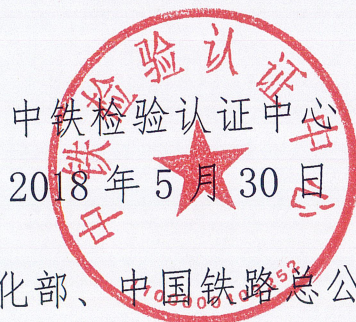 中铁检验认证中心
2018 年 5 月 30 日
化部、中国铁路总公
中铁检验认证中心